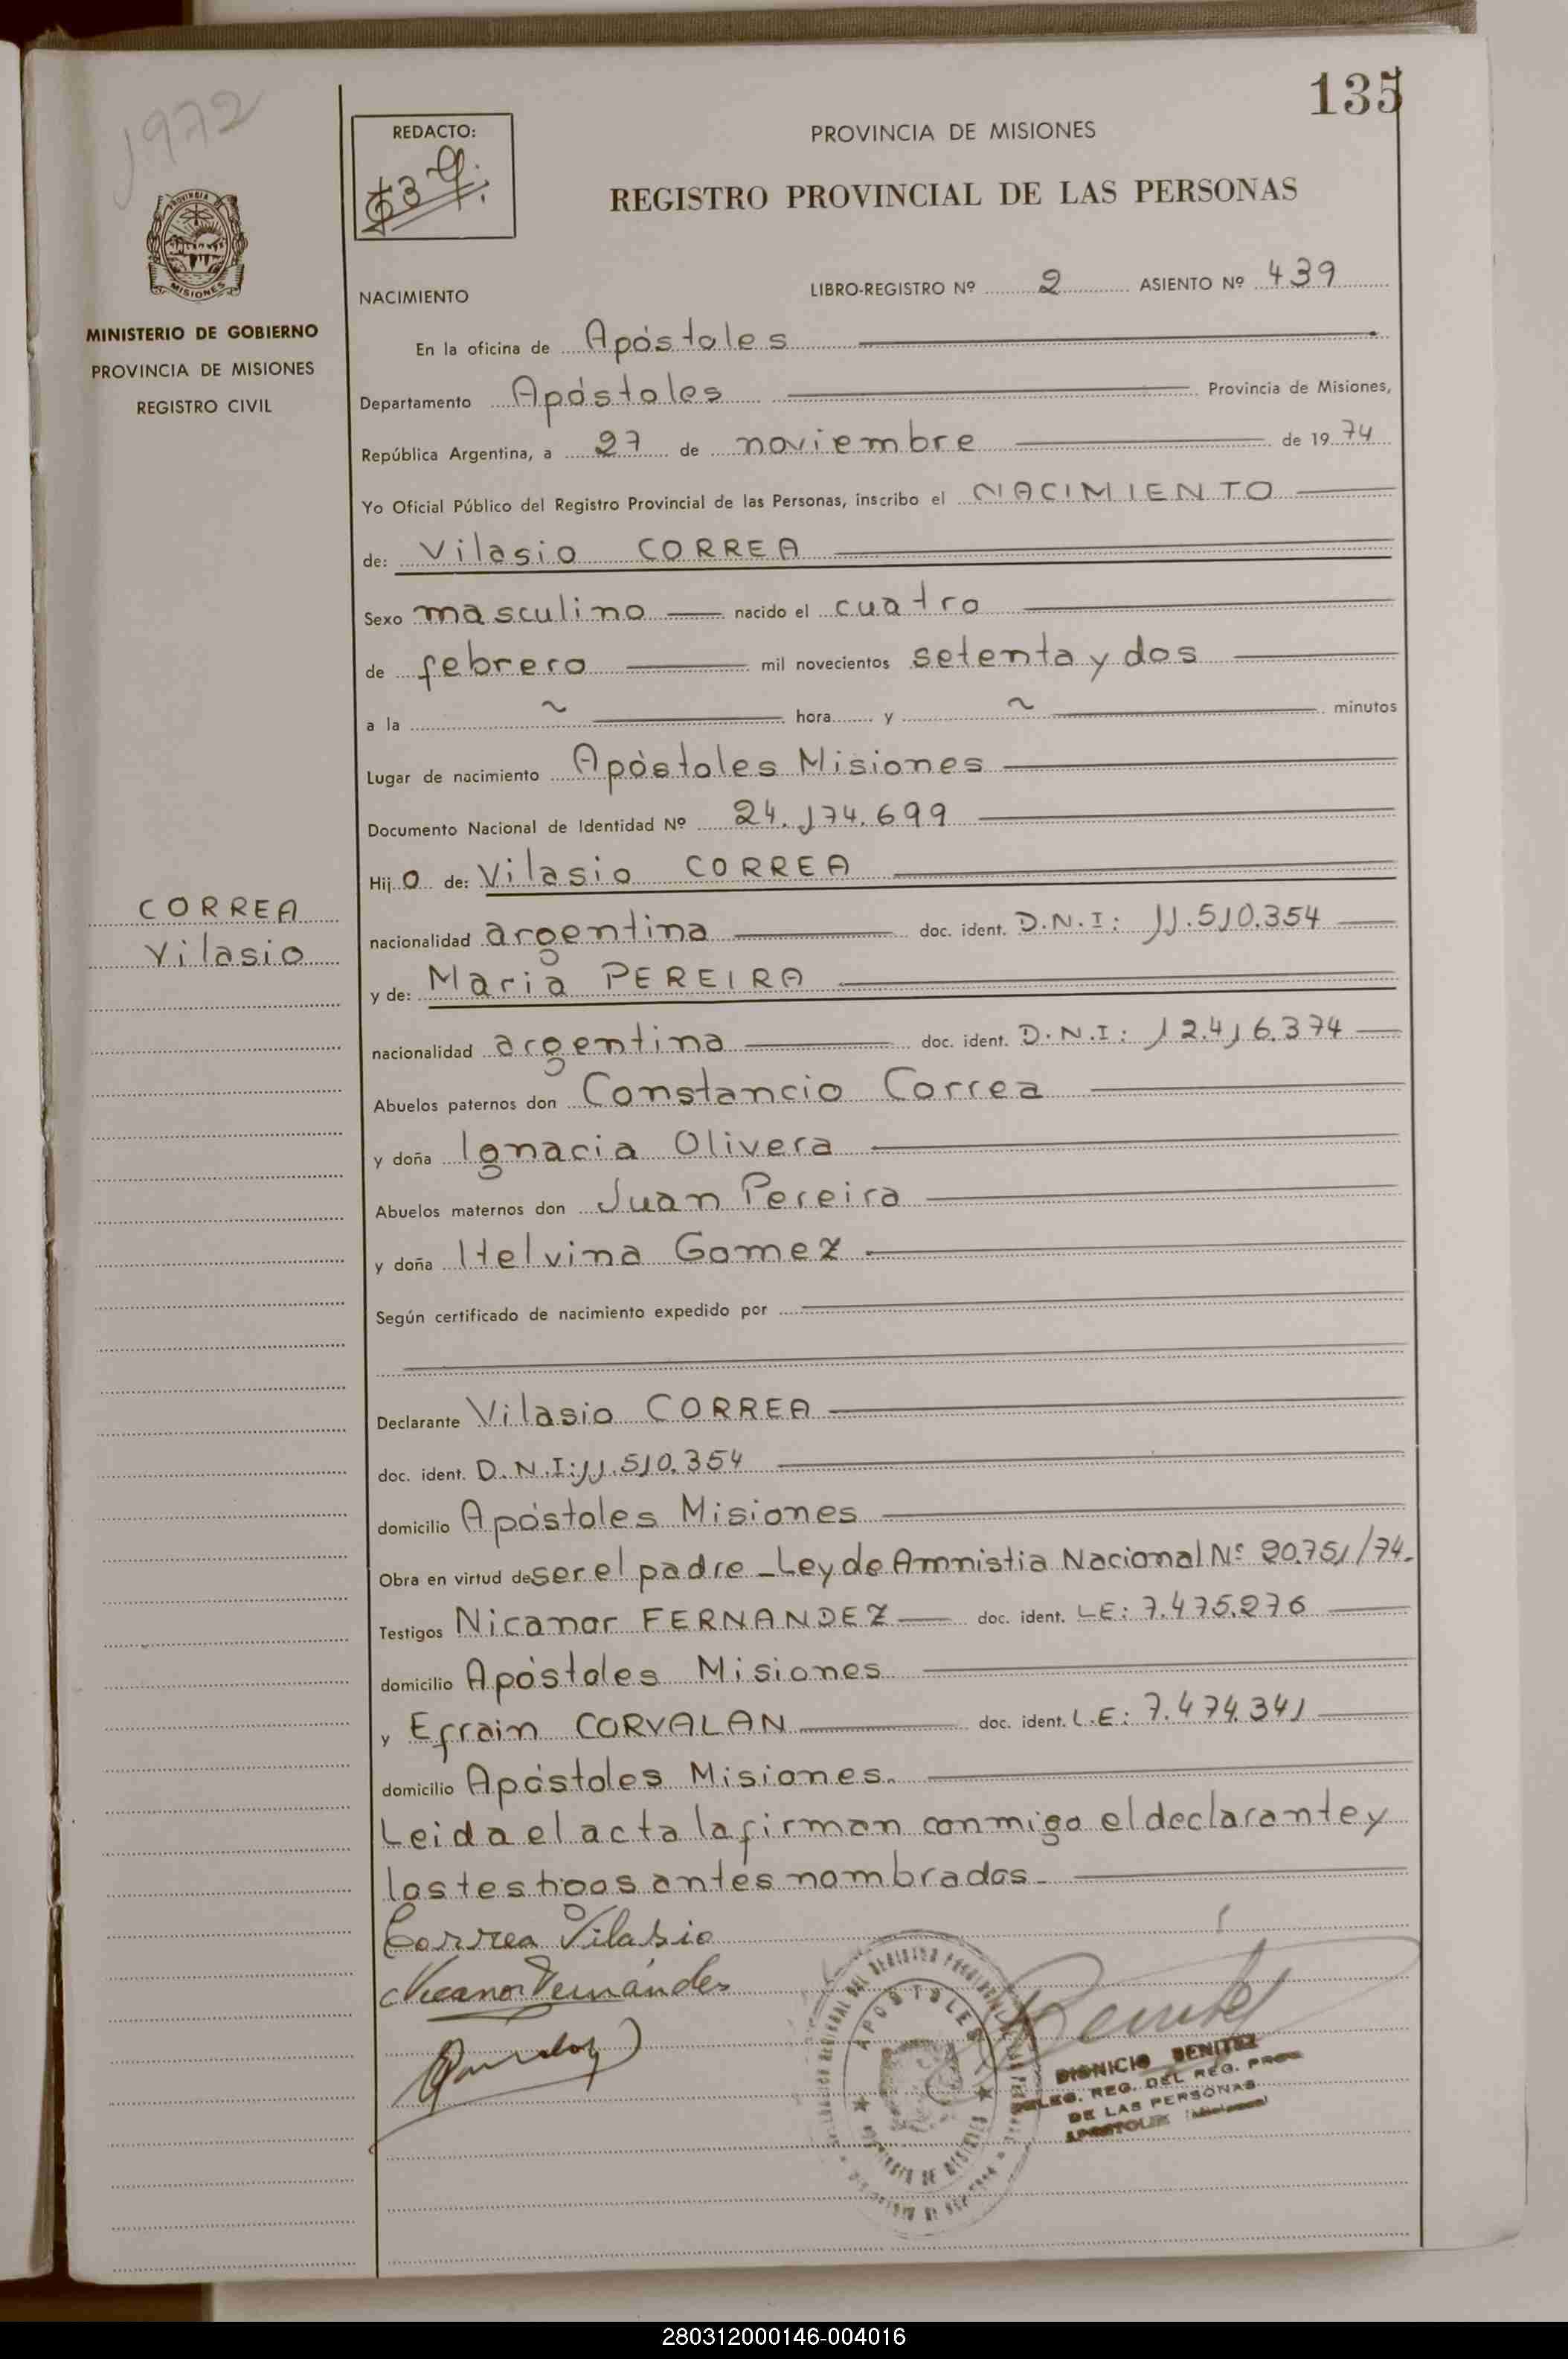 135
1972
REDACTO:
PROVINCIA DE MISIONES
REGISTRO PROVINCIAL DE LAS PERSONAS
MISIONES
MINISTERIO DE GOBIERNO
PROVINCIA DE MISIONES
REGISTRO CIVIL
NACIMIENTO
LIBRO-REGISTRO Nº 2 ASIENTO Nº 439
En la oficina de Apóstoles
Departamento Apóstoles Provincia de Misiones,
República Argentina, a 27 de noviembre de 1974
Yo Oficial Público del Registro Provincial de las Personas, inscribo el NACIMIENTO
de: Vilasio CORREA
Sexo masculino nacido el cuatro
de febrero mil novecientos setenta y dos
a la ~ hora y ~ minutos
Lugar de nacimiento Apóstoles Misiones
Documento Nacional de Identidad Nº 24.174.699
Hijo de: Vilasio CORREA
CORREA
Vilasio
nacionalidad argentina doc. ident. D.N.I: 11.510.354
y de: Maria PEREIRA
nacionalidad argentina doc. ident. D.N.I: 12.416.374
Abuelos paternos don Constancio Correa
y doña Ignacia Olivera
Abuelos maternos don Juan Pereira
y doña Helvina Gomez
Según certificado de nacimiento expedido por
Declarante Vilasio CORREA
doc. ident. D.N.I: 11.510.354
domicilio Apóstoles Misiones
Obra en virtud de ser el padre - Ley de Amnistia Nacional Nº 20.751/74.
Testigos Nicanor FERNANDEZ doc. ident. LE: 7.475.276
domicilio Apóstoles Misiones
y Efrain CORVALAN doc. ident. L.E: 7.474.341
domicilio Apóstoles Misiones.
Leida el acta la firman conmigo el declarante y
los testigos antes nombrados.
Correa Vilasio
Nicanor Fernández
APOSTOLES
DIONICIO BENITEZ
DELEG. REG. DEL REG. PROV.
DE LAS PERSONAS
APOSTOLES (Misiones)
280312000146-004016